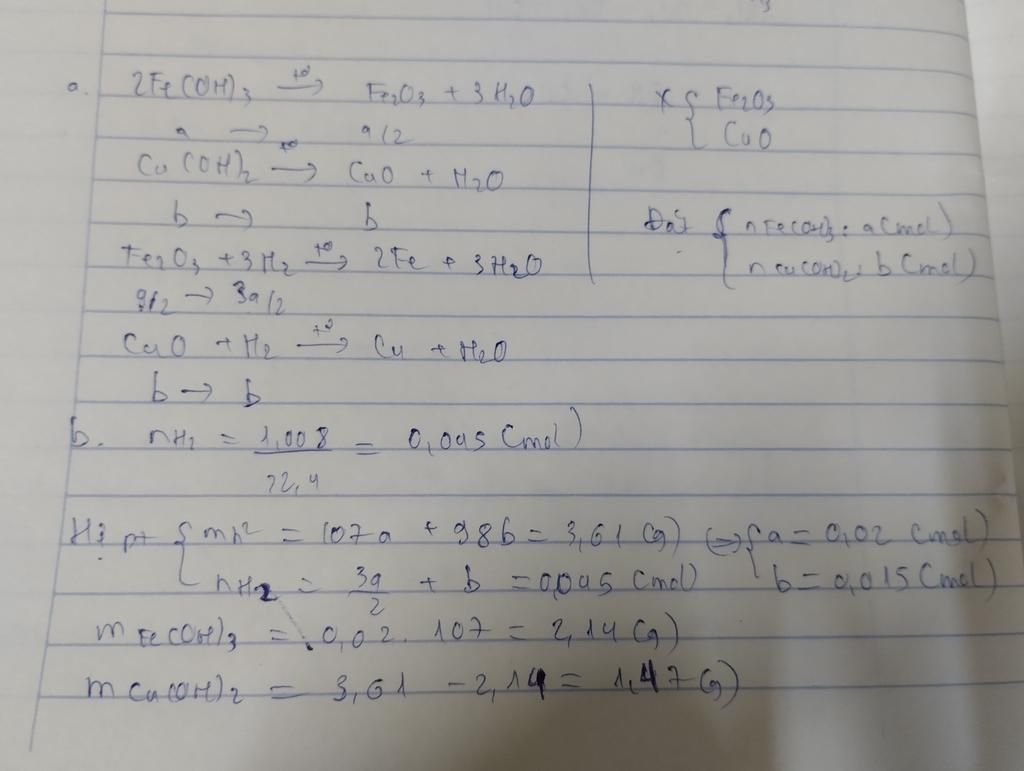 a. 2Fe(OH)3 t° → Fe2O3 + 3H2O
a → a/2
Cu(OH)2 t° → CuO + H2O
b → b
Fe2O3 + 3H2 t° → 2Fe + 3H2O
a/2 → 3a/2
CuO + H2 t° → Cu + H2O
b → b
X { Fe2O3
CuO
Đặt { nFe(OH)3: a (mol)
nCu(OH)2: b (mol)
b. nH2 = 1,008 / 22,4 = 0,045 (mol)
Hệ pt { mh² = 107a + 98b = 3,61 (g) ⇔ { a = 0,02 (mol)
nH2 = 3a/2 + b = 0,045 (mol) b = 0,015 (mol)
m Fe(OH)3 = 0,02 . 107 = 2,14 (g)
m Cu(OH)2 = 3,61 - 2,14 = 1,47 (g)